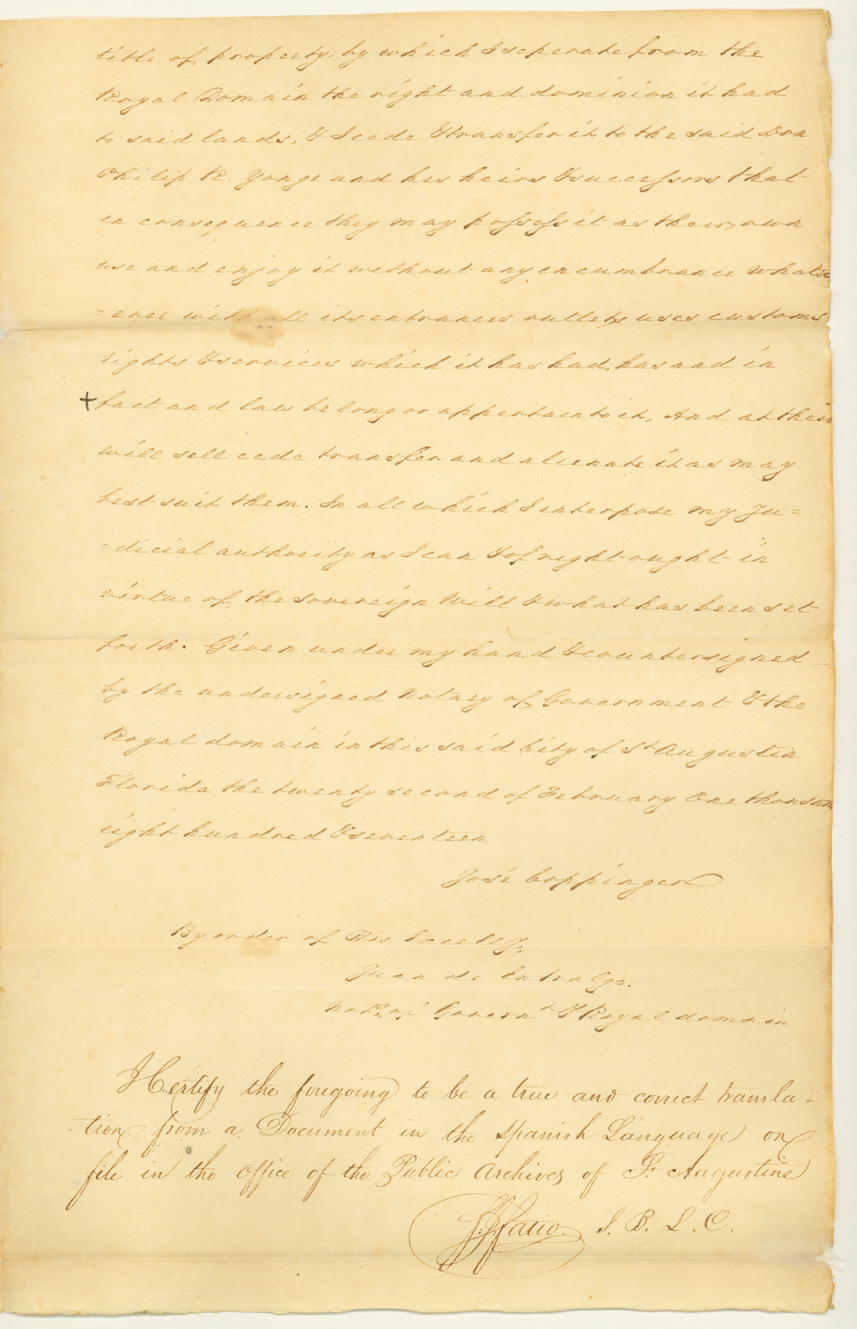 title of property by which I seperate from the
Royal Domain the right and dominion it had
to said lands, & I cede & transfer it to the said Don
Philip R. Yonge and his heirs & successors that
in consequence they may possess it as their own
use and enjoy it without any incumbrance whatso
=ever with all its entrances outlets uses customs
rights & services which it has had, has and in
+ fact and law belong or appertain to it, And at their
will sell cede transfer and alienate it as may
best suit them. In all which I interpose my Ju=
=dicial authority as I can & of right ought in
virtue of the Sovereign Will & what has been set
forth. Given under my hand & countersigned
by the undersigned Notary of Government & the
Royal domain in this said City of St Augustin
Florida the twenty second of February One thousan
eight hundred & seventeen
José Coppinger
By order of His Excelly.
Juan de Entralgo.
Noty. of Governt. & Royal domain
I Certify the foregoing to be a true and correct transla-
-tion from a Document in the Spanish Language on
file in the office of the Public Archives of St. Augustine
F. J. Fatio. S. B. L. C.